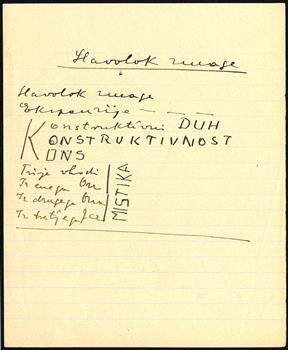 Havolok zmage
Havolok zmage
Ekspanzije — — —
Konstruktivni DUH
KONSTRUKTIVNOST
KONS
Trije vhodi
Iz enega
Iz drugega
Iz tretjega
MISTIKA